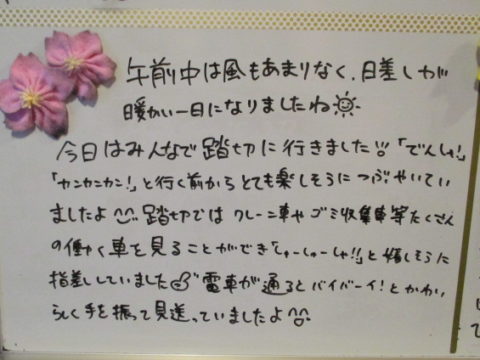 午前中は風もあまりなく、日差しが
暖かい一日になりましたね
今日はみんなで踏切に行きました!!「でんしゃ!」
「カンカンカン!」と行く前からとても楽しそうにつぶやいてい
ましたよ 踏切ではクレーン車やゴミ収集車等たくさん
の働く車を見ることができ「しゅーしゅーしゃ!!」と嬉しそうに
指差ししていました 電車が通るとバイバーイ!とかわい
らしく手を振って見送っていましたよ